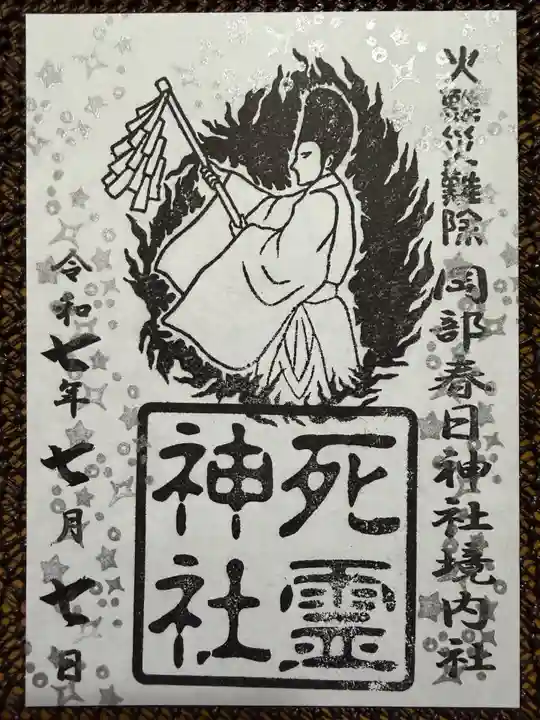 火難災難除 岡部春日神社境内社
死霊
神社
令和七年七月七日